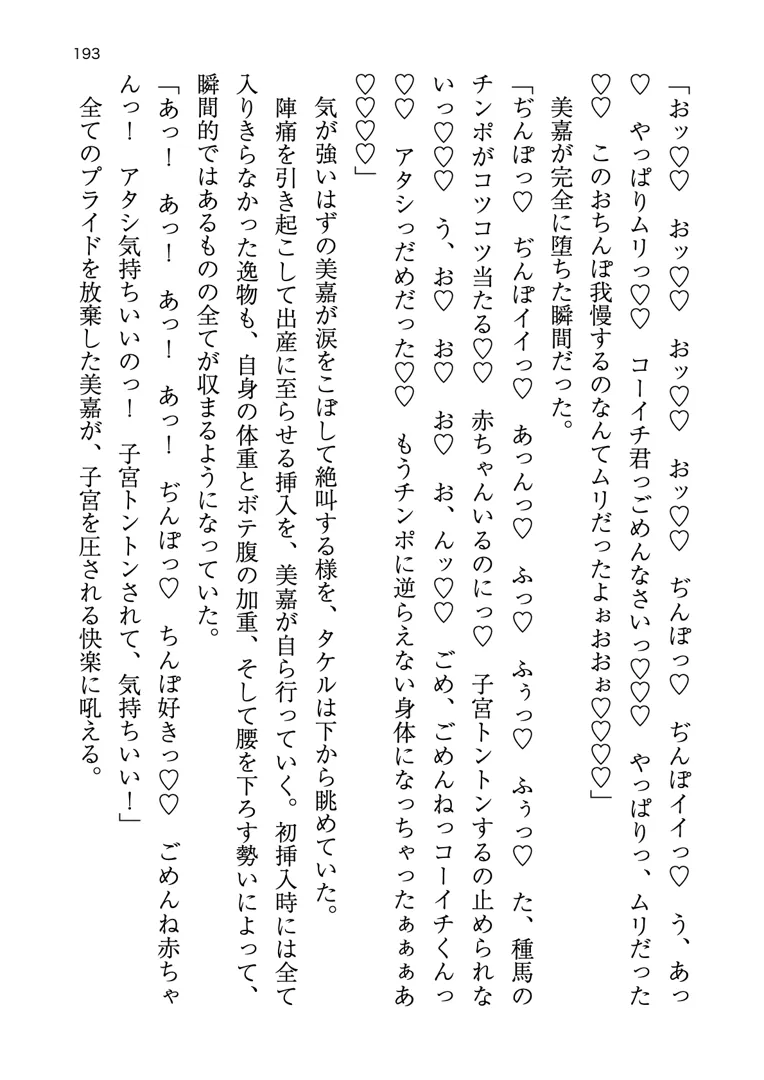 193
「おッ♡♡　おッ♡♡　おッ♡♡　おッ♡♡　ぢんぽっ♡　ぢんぽイイっ♡　う、あっ
♡　やっぱりムリっ♡♡　コーイチ君っごめんなさいっ♡♡♡　やっぱりっ、ムリだった
♡♡　このおちんぽ我慢するのなんてムリだったよぉおおぉ♡♡♡♡」
　美嘉が完全に堕ちた瞬間だった。
「ぢんぽっ♡　ぢんぽイイっ♡　あっんっ♡　ふっ♡　ふぅっ♡　ふぅっ♡　た、種馬の
チンポがコツコツ当たる♡♡　赤ちゃんいるのにっ♡　子宮トントンするの止められな
いっ♡♡♡　う、お♡　お♡　お♡　お、んッ♡♡　ごめ、ごめんねっコーイチくんっ
♡♡　アタシっだめだった♡♡　もうチンポに逆らえない身体になっちゃったぁぁぁあ
♡♡♡♡」
　気が強いはずの美嘉が涙をこぼして絶叫する様を、タケルは下から眺めていた。
　陣痛を引き起こして出産に至らせる挿入を、美嘉が自ら行っていく。初挿入時には全て
入りきらなかった逸物も、自身の体重とボテ腹の加重、そして腰を下ろす勢いによって、
瞬間的ではあるものの全てが収まるようになっていた。
「あっ！　あっ！　あっ！　あっ！　ぢんぽっ♡　ちんぽ好きっ♡♡　ごめんね赤ちゃ
んっ！　アタシ気持ちいいのっ！　子宮トントンされて、気持ちいい！」
　全てのプライドを放棄した美嘉が、子宮を圧される快楽に吼える。